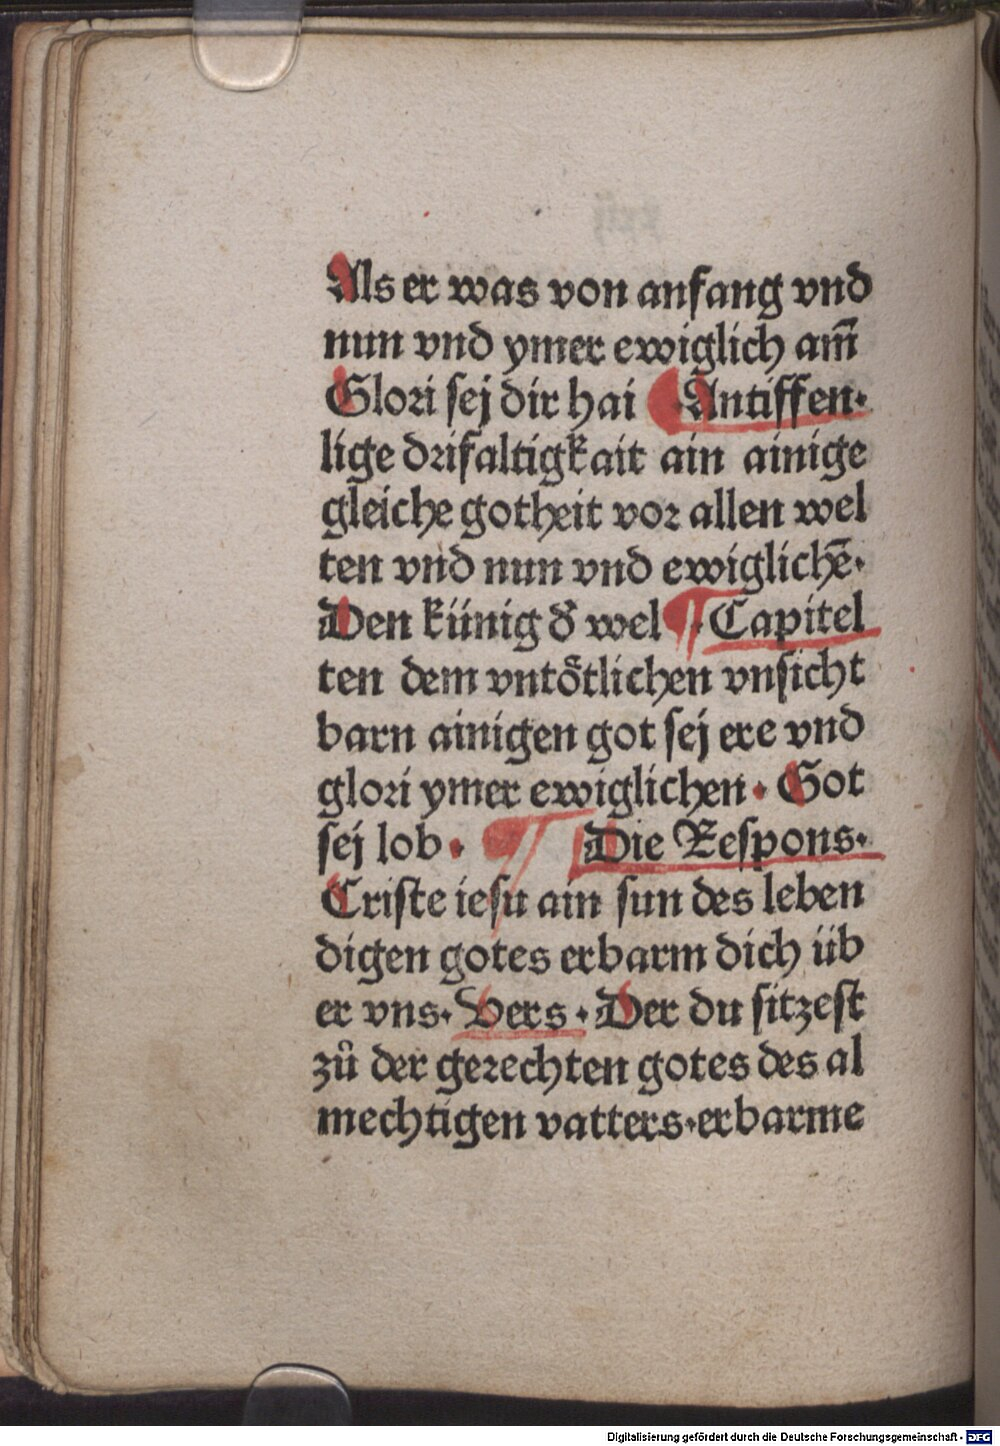 Als er was von anfang vnd
nun vnd ymer ewiglich am̅
Glori sej dir hai ¶ Antiffen·
lige drifaltigkait ain ainige
gleiche gotheit vor allen wel
ten vnd nun vnd ewigliche̅·
Den künig d̕ wel ¶ · Capitel
ten dem vntoͤtlichen vnsicht
barn ainigen got sej ere vnd
glori ymer ewiglichen· Got
sej lob· ¶ Die Respons·
Criste iesu ain sun des leben
digen gotes erbarm dich üb
er vns· Vers · Der du sitzest
zů der gerechten gotes des al
mechtigen vatters·erbarme
Digitalisierung gefördert durch die Deutsche Forschungsgemeinschaft - DFG